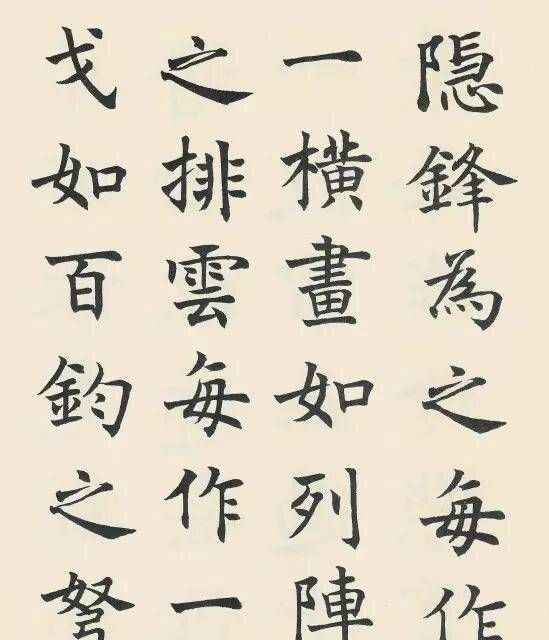 隐鋒為之每作
一橫畫如列陣
之排雲每作一
戈如百鈞之弩